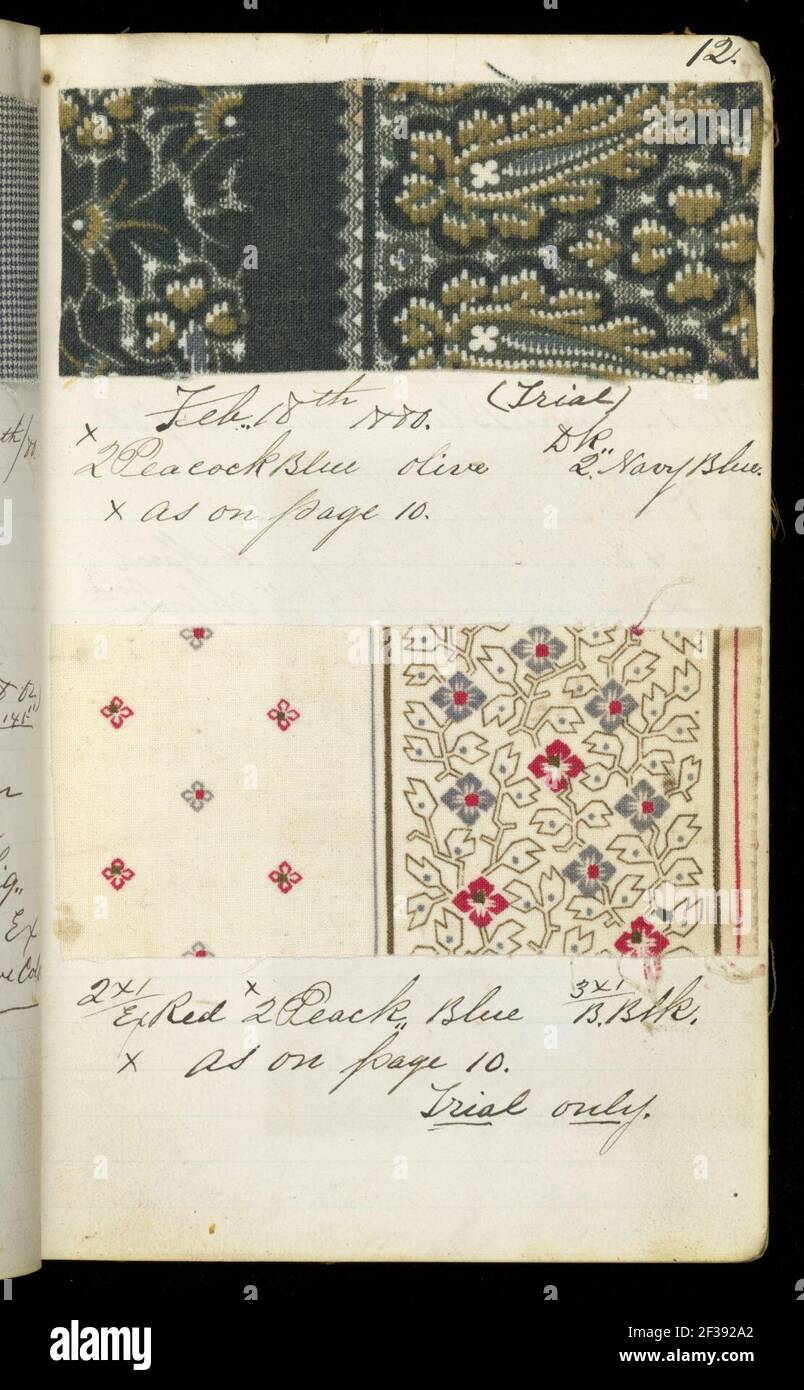 12.
Feb. 18th 1880. (Trial)
x 2 Peacock Blue olive Dk 2 Navy Blue.
x as on page 10.
2 x1/Ex Red x 2 Peack Blue 3x1/B. Blk.
x as on page 10.
Trial only.
th/80
Ex
alamy
Image ID: 2F392A2
www.alamy.com